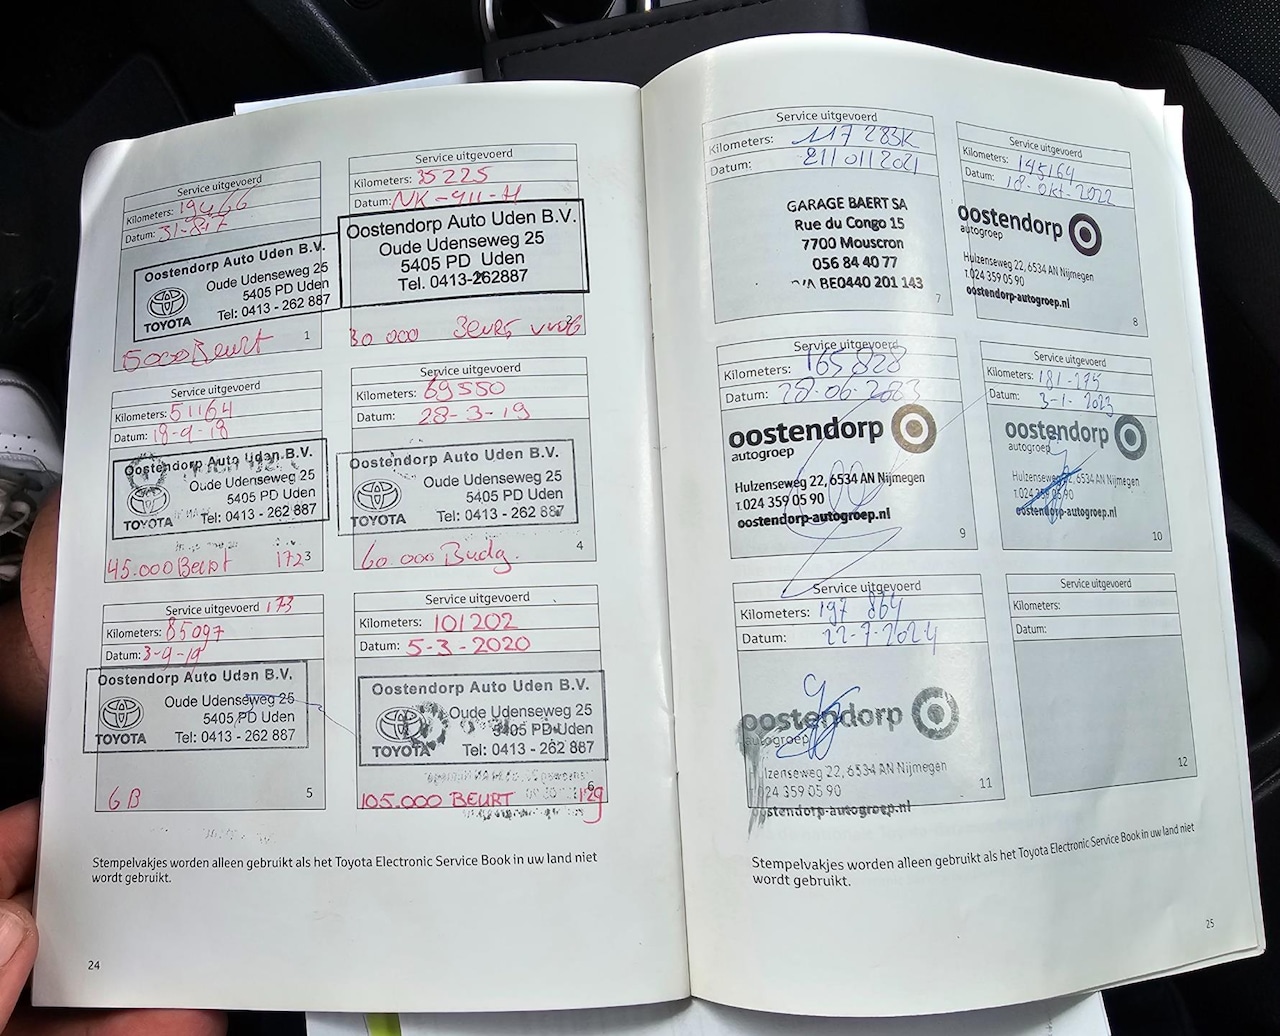 Service uitgevoerd
Kilometers: 19466
Datum: 31-8-17
Oostendorp Auto Uden B.V.
Oude Udenseweg 25
5405 PD Uden
Tel: 0413 - 262 887
TOYOTA
1
15000 Beurt
Service uitgevoerd
Kilometers: 35225
Datum: NK-911-H
Oostendorp Auto Uden B.V.
Oude Udenseweg 25
5405 PD Uden
Tel. 0413-262887
30 000 Beurt
Service uitgevoerd
Kilometers: 51164
Datum: 18-9-18
Oostendorp Auto Uden B.V.
Oude Udenseweg 25
5405 PD Uden
Tel: 0413 - 262 887
TOYOTA
45.000 Beurt 172
3
Service uitgevoerd
Kilometers: 69550
Datum: 28-3-19
Oostendorp Auto Uden B.V.
Oude Udenseweg 25
5405 PD Uden
Tel: 0413 - 262 887
TOYOTA
4
60.000 Budg.
Service uitgevoerd 173
Kilometers: 85097
Datum: 3-9-19
Oostendorp Auto Uden B.V.
Oude Udenseweg 25
5405 PD Uden
Tel: 0413 - 262 887
TOYOTA
6B
5
Service uitgevoerd
Kilometers: 101202
Datum: 5-3-2020
Oostendorp Auto Uden B.V.
Oude Udenseweg 25
5405 PD Uden
Tel: 0413 - 262 887
TOYOTA
6
105.000 BEURT 129
Stempelvakjes worden alleen gebruikt als het Toyota Electronic Service Book in uw land niet
wordt gebruikt.
24
Service uitgevoerd
Kilometers: 117283K
Datum: 21/01/2021
GARAGE BAERT SA
Rue du Congo 15
7700 Mouscron
056 84 40 77
BE0440 201 143
7
Service uitgevoerd
Kilometers: 145164
Datum: 18-okt-2022
oostendorp
autogroep
Hulzenseweg 22, 6534 AN Nijmegen
T.024 359 05 90
oostendorp-autogroep.nl
8
Service uitgevoerd
Kilometers: 165828
Datum: 28-06-2023
oostendorp
autogroep
Hulzenseweg 22, 6534 AN Nijmegen
T.024 359 05 90
oostendorp-autogroep.nl
9
Service uitgevoerd
Kilometers: 181-275
Datum: 3-1-2023
oostendorp
autogroep
Hulzenseweg 22, 6534 AN Nijmegen
T.024 359 05 90
oostendorp-autogroep.nl
10
Service uitgevoerd
Kilometers: 197 864
Datum: 22-7-2024
oostendorp
autogroep
lzenseweg 22, 6534 AN Nijmegen
024 359 05 90
oostendorp-autogroep.nl
11
Service uitgevoerd
Kilometers:
Datum:
12
Stempelvakjes worden alleen gebruikt als het Toyota Electronic Service Book in uw land niet
wordt gebruikt.
25